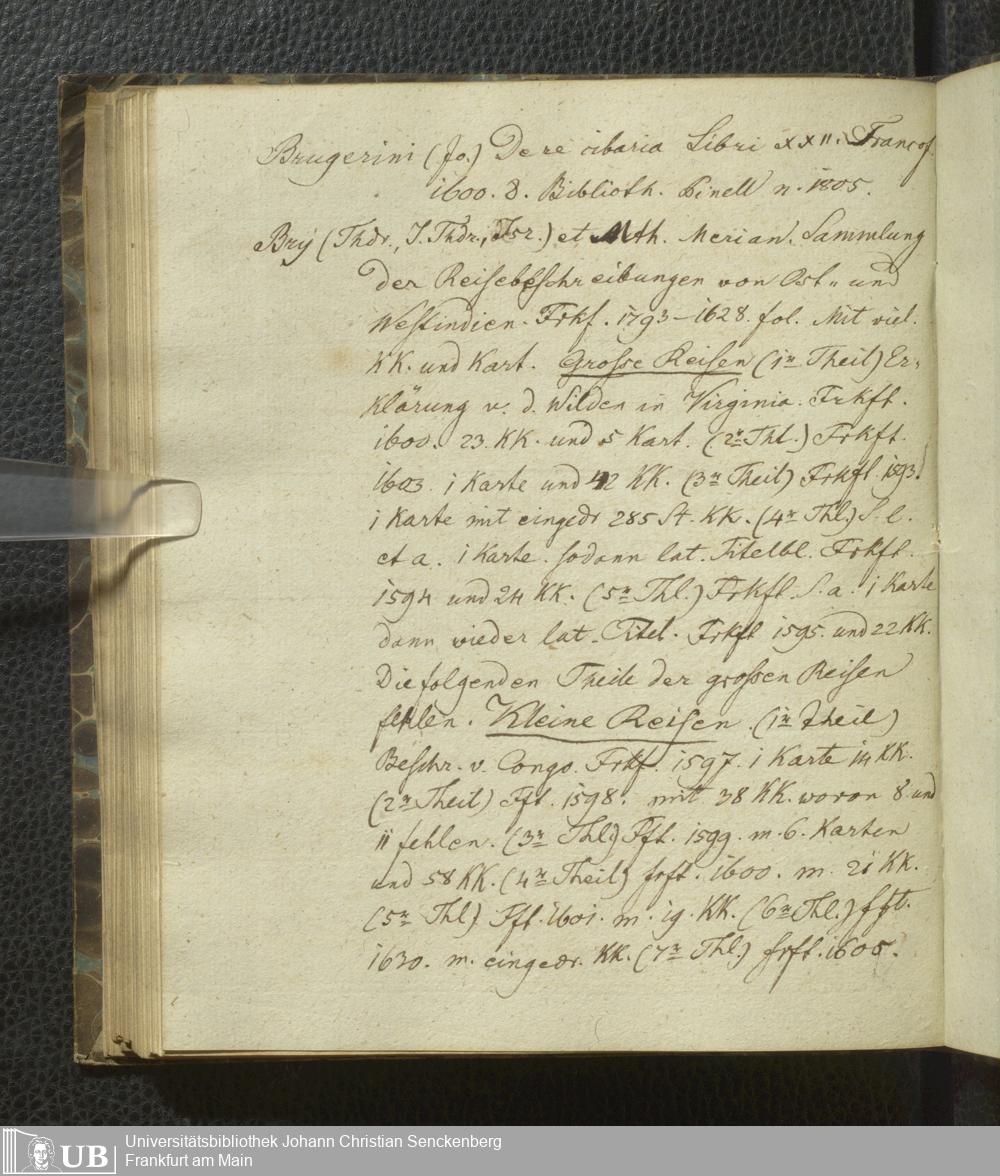 Brugerini (Jo.) De re cibaria Libri XXII. Francof.
1600. 8. Biblioth. Pinell n. 1805.
Bry (Thdr., J. Thdr., Isr.) et Mth. Merian. Sammlung
der Reisebeschreibungen von Ost- und
Westindien. Frkf. 1793–1628. fol. Mit viel.
KK. und Kart. Grosse Reisen (1r Theil) Er-
klärung v. d. Wilden in Virginia. Frkft.
1600. 23. KK. und 5 Kart. (2r Thl.) Frkft.
1603. 1 Karte und 42 KK. (3r Theil) Frkft. 1593.
1 Karte mit eingedr 285 St. KK. (4r Thl.) S. l.
et a. 1 Karte. sodann lat. Titelbl. Frkft.
1594 und 24 KK. (5r Thl.) Frkft. S. a. 1 Karte
dann wieder lat. Titel. Frkft 1595. und 22 KK.
Die folgenden Theile der grossen Reisen
fehlen. Kleine Reisen (1r Theil)
Beschr. v. Congo. Frkf. 1597. 1 Karte 14 KK.
(2r Theil) Fft. 1598. mit 38 KK. woran 8. und
11 fehlen. (3r Thl.) Fft. 1599. m. 6. Karten
und 58 KK. (4r Theil) frft. 1600. m. 21 KK.
(5r Thl.) Fft. 1601. m. 19. KK. (6r Thl.) fft.
1630. m. eingedr. KK. (7r Thl.) frft. 1605.
UB
Universitätsbibliothek Johann Christian Senckenberg
Frankfurt am Main